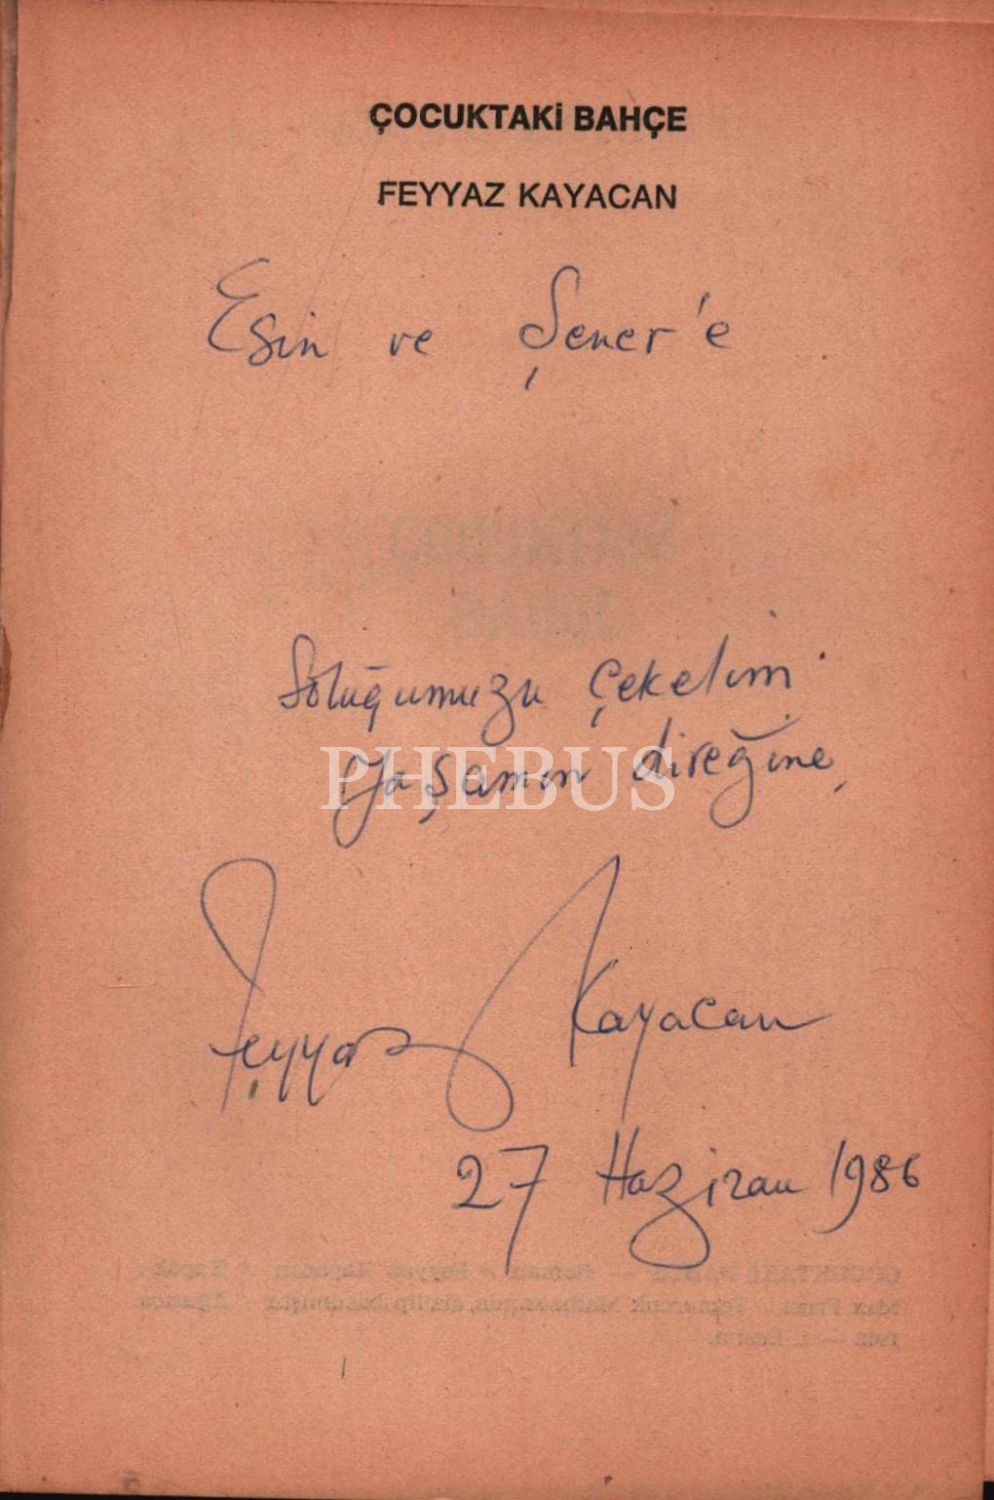 ÇOCUKTAKİ BAHÇE
FEYYAZ KAYACAN
Esin ve Şener'e
Soluğumuzu çekelim
Yaşamın direğine
PHEBUS
Feyyaz Kayacan
27 Haziran 1986